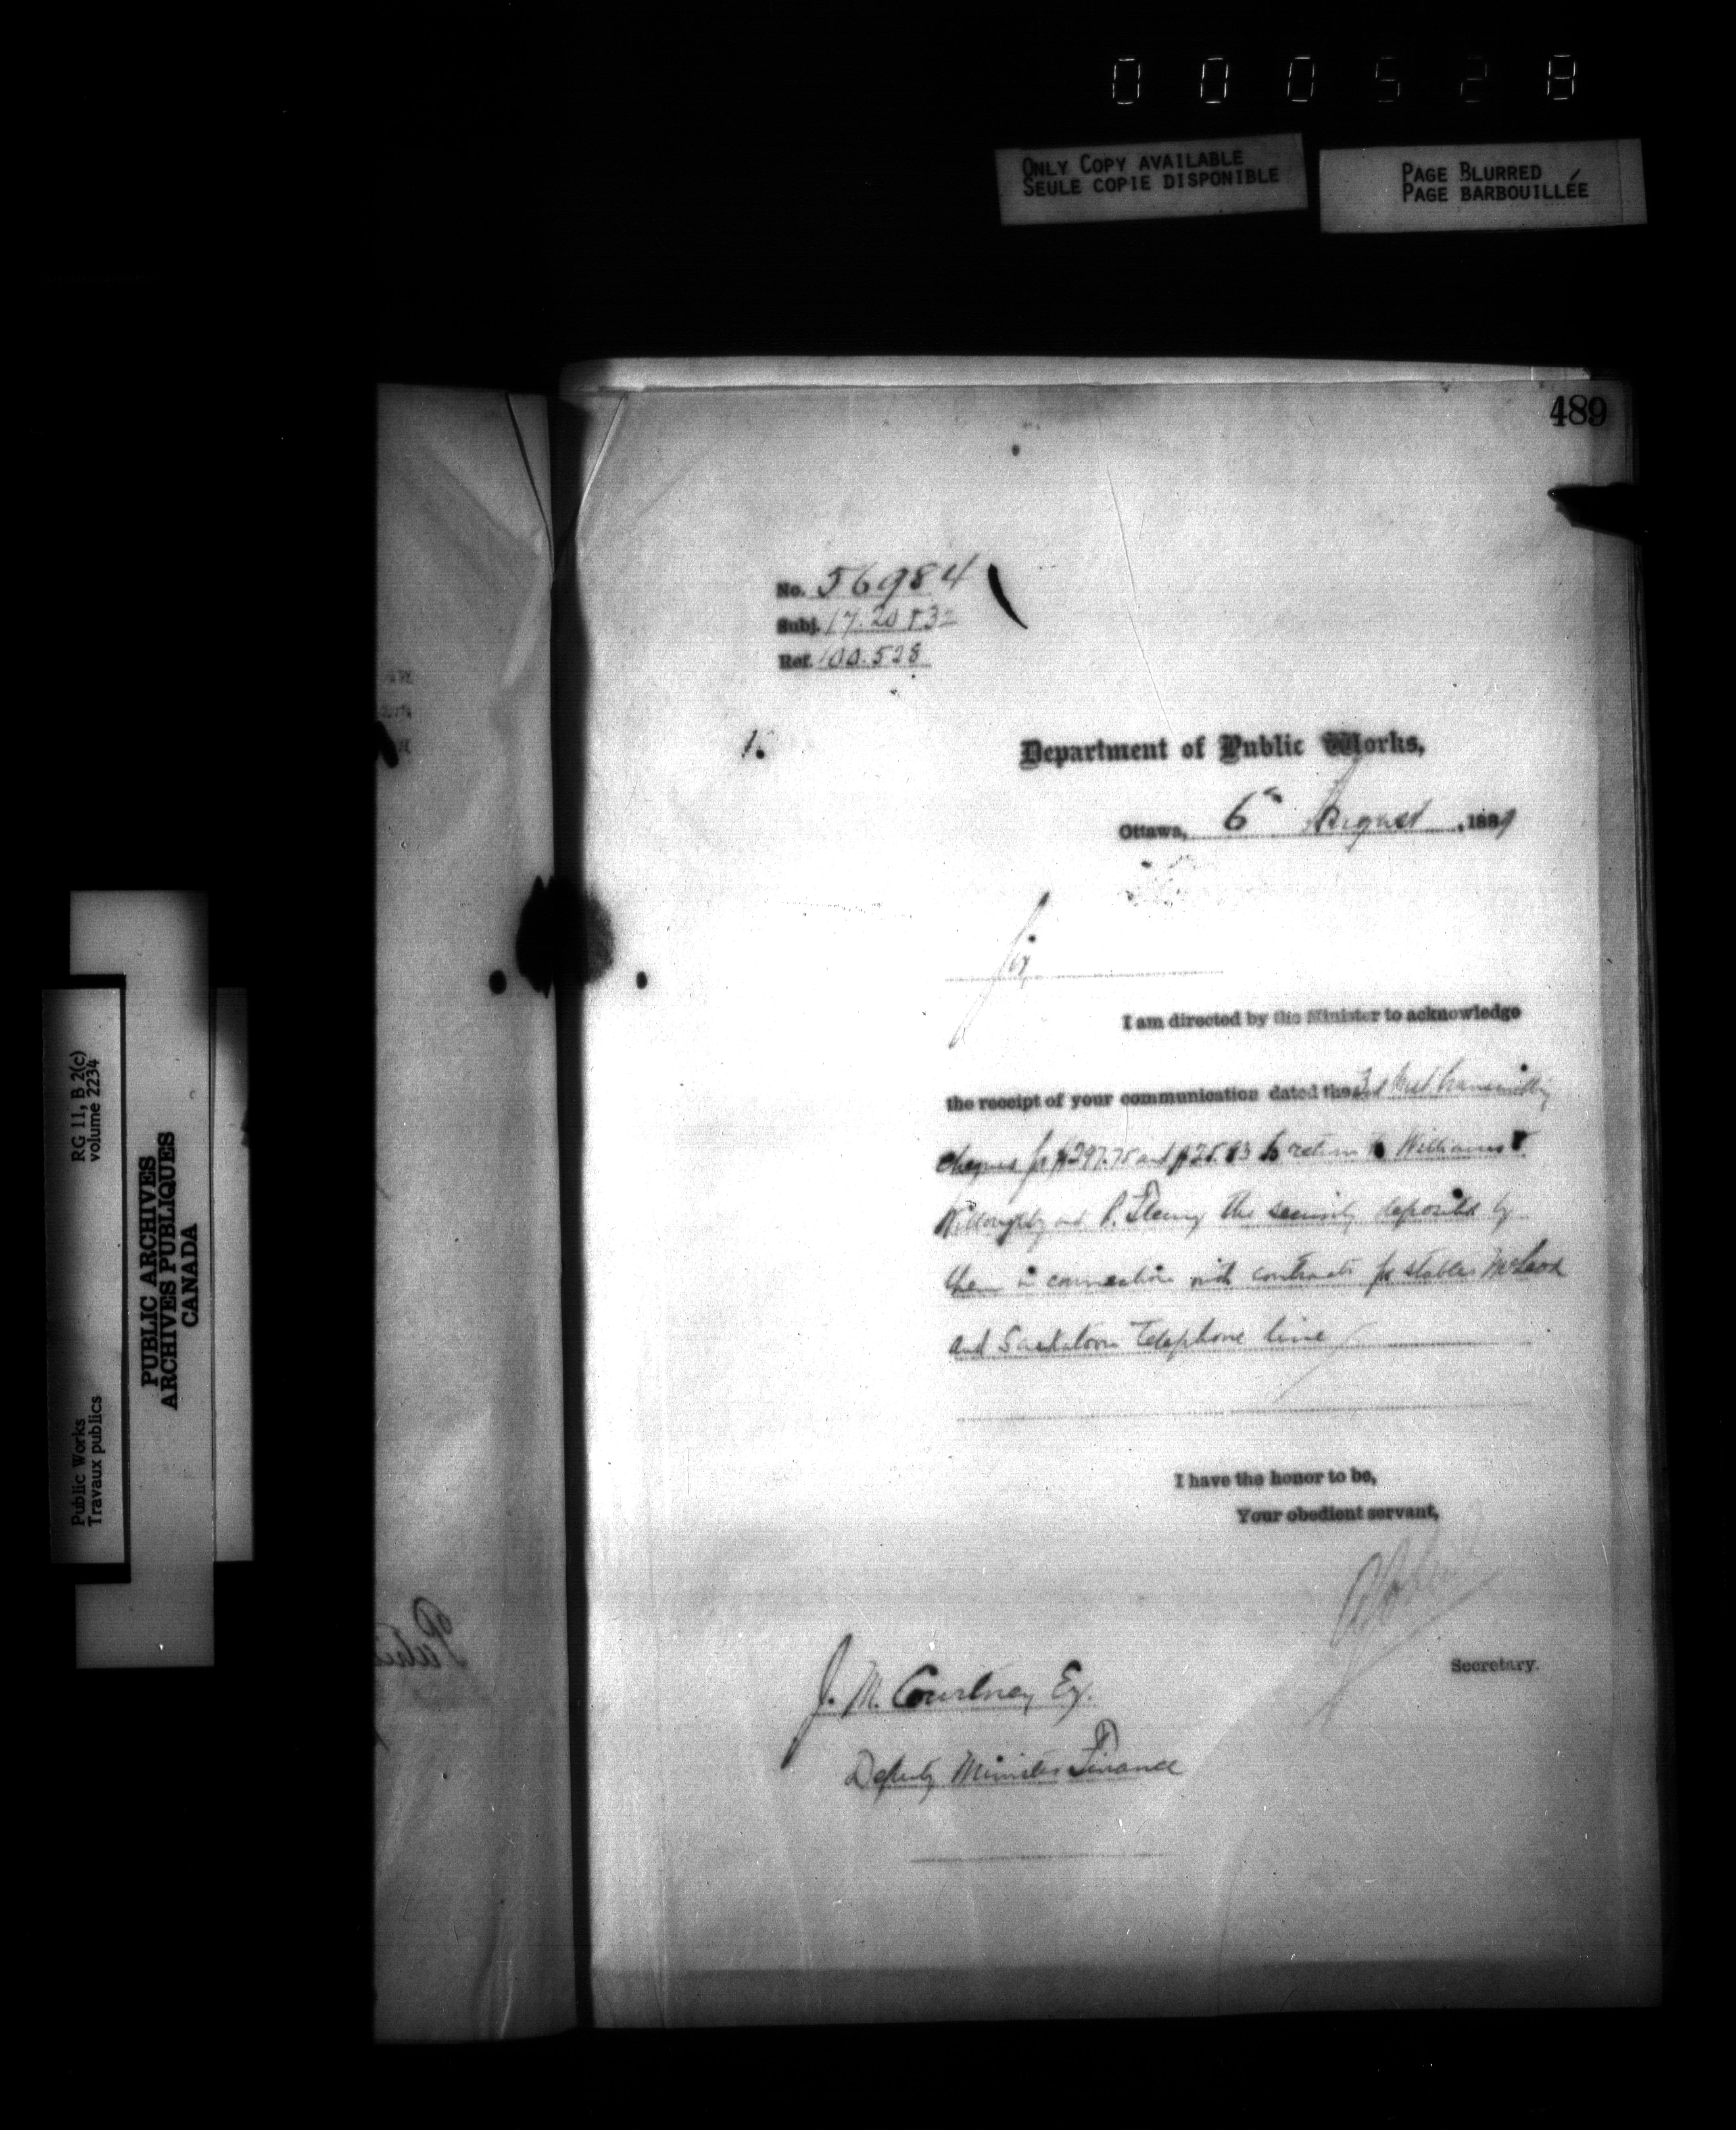 000528
ONLY COPY AVAILABLE
SEULE COPIE DISPONIBLE
PAGE BLURRED
PAGE BARBOUILLÉE
489
No. 56984
Subj. 17.20832
Ref. 100.528
1.
Department of Public Works,
Ottawa, 6th August, 1889
Sir,
I am directed by the Minister to acknowledge
the receipt of your communication dated the 3rd inst. transmitting
cheques for $297.75 and to return to Williams &
Willoughby and P. Fleming the security deposited by
them in connection with contracts for stables McLeod
and Saskatoon Telephone line
I have the honor to be,
Your obedient servant,
Secretary.
J. M. Courtney Esq.
Deputy Minister Finance
Public Works
Travaux publics
RG 11, B 2(c)
volume 2234
PUBLIC ARCHIVES
ARCHIVES PUBLIQUES
CANADA